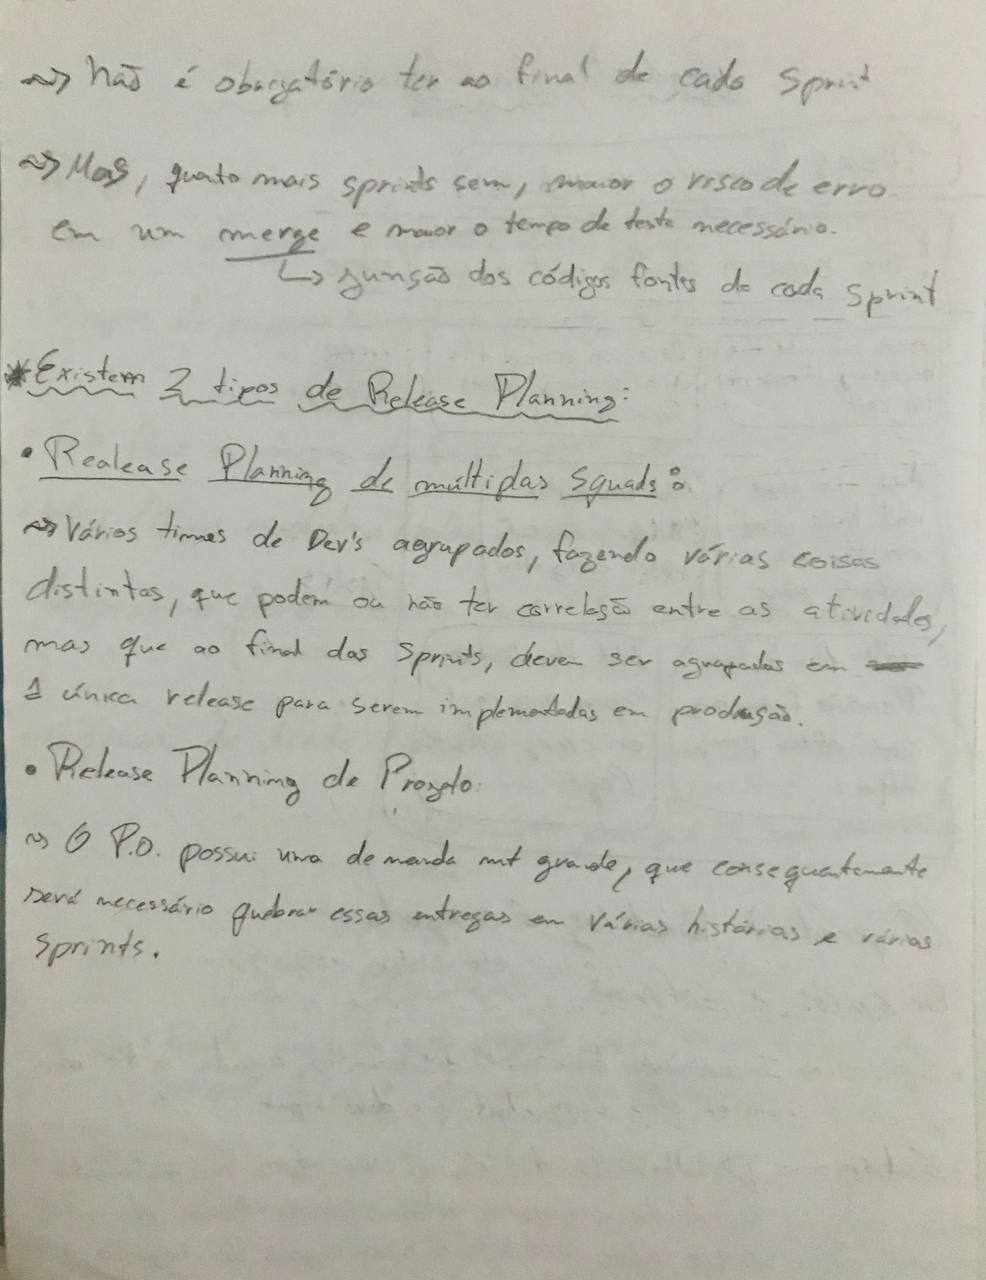 ~> Não é obrigatório ter ao final de cada Sprint
~> Mas, quato mais sprints sem, maior o risco de erro
em um merge e maior o tempo de teste necessário.
↳ junção dos códigos fontes de cada Sprint
* Existem 2 tipos de Release Planning:
• Realease Planning de múltiplas Squads:
~> Vários times de Dev's agrupados, fazendo várias coisas
distintas, que podem ou não ter correlação entre as atividades,
mas que ao final das Sprints, devem ser agrupadas em
1 única release para serem implementadas em produção.
• Release Planning de Projeto:
~> O P.O. possui uma demanda mt grande, que consequentemente
será necessário quebrar essas entregas em várias histórias e várias
Sprints.